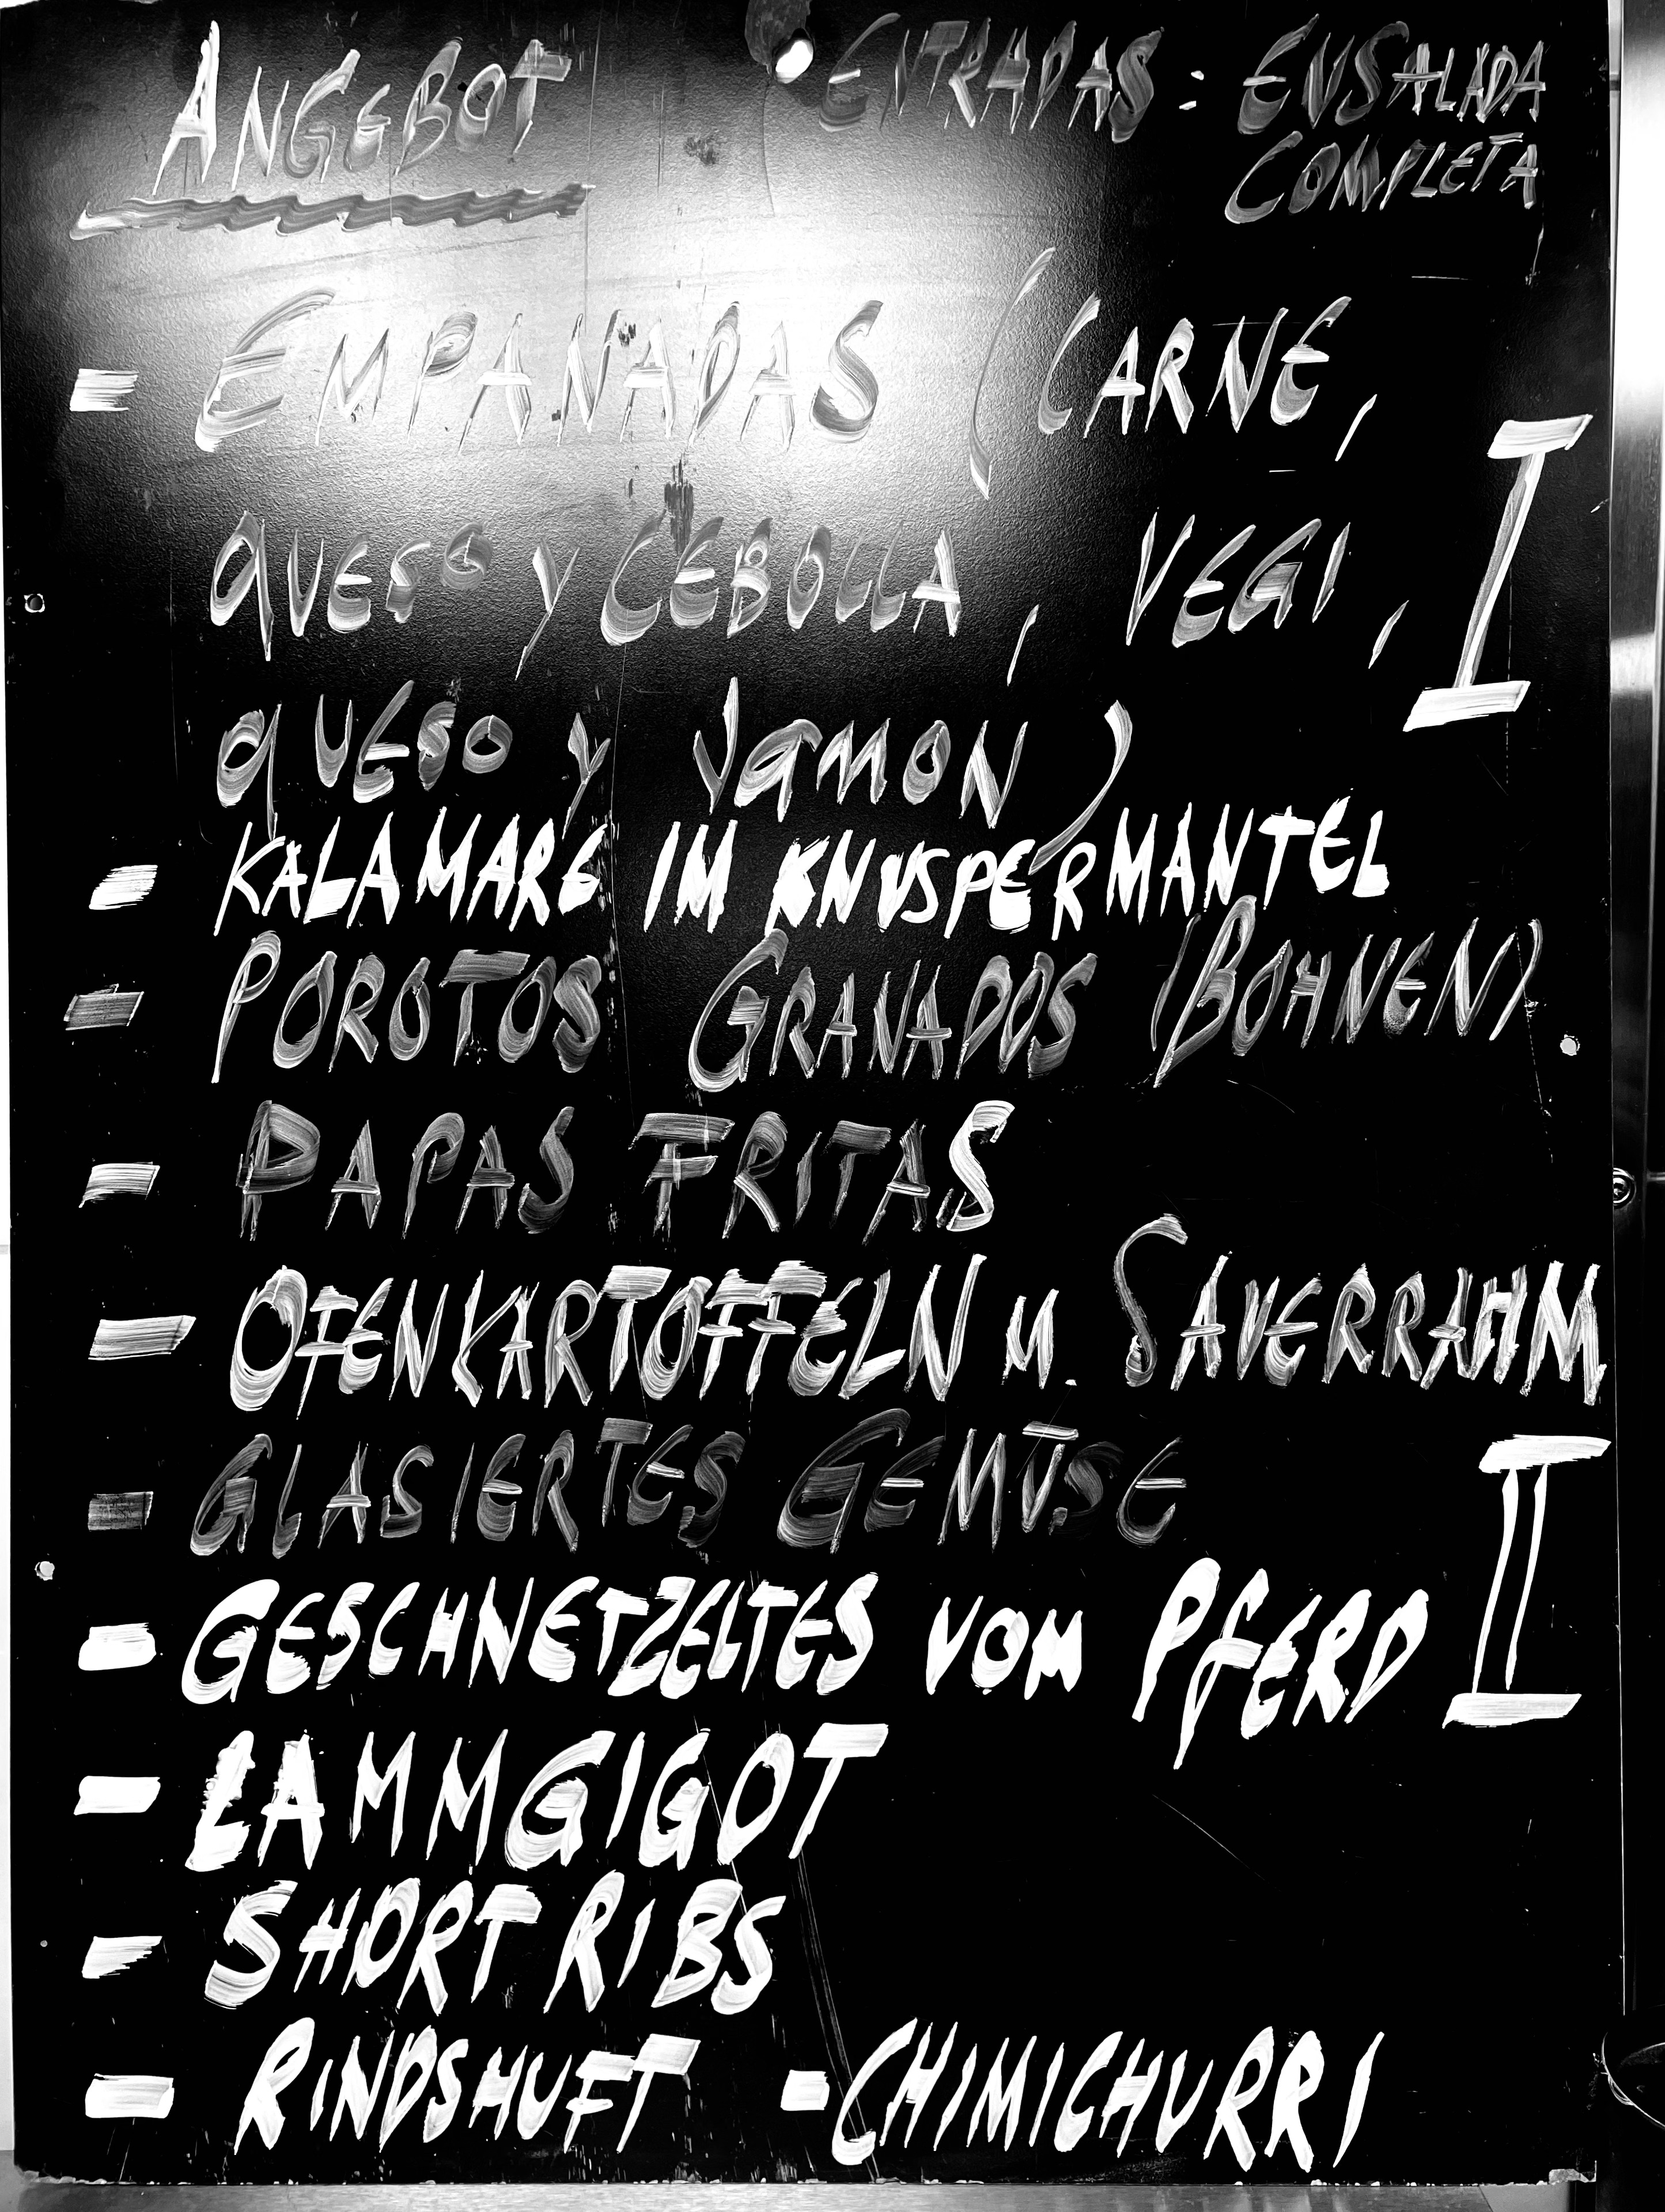 ANGEBOT
ENTRADAS: ENSALADA
COMPLETA
- EMPANADAS (CARNE,
QUESO Y CEBOLLA, VEGI,
QUESO Y JAMON)
I
- KALAMARE IM KNUSPERMANTEL
- POROTOS GRANADOS (BOHNEN).
- PAPAS FRITAS
- OFENKARTOFFELN u. SAUERRAHM
- GLASIERTES GEMÜSE
- GESCHNETZELTES VOM PFERD
II
- LAMMGIGOT
- SHORT RIBS
- RINDSHUFT - CHIMICHURRI